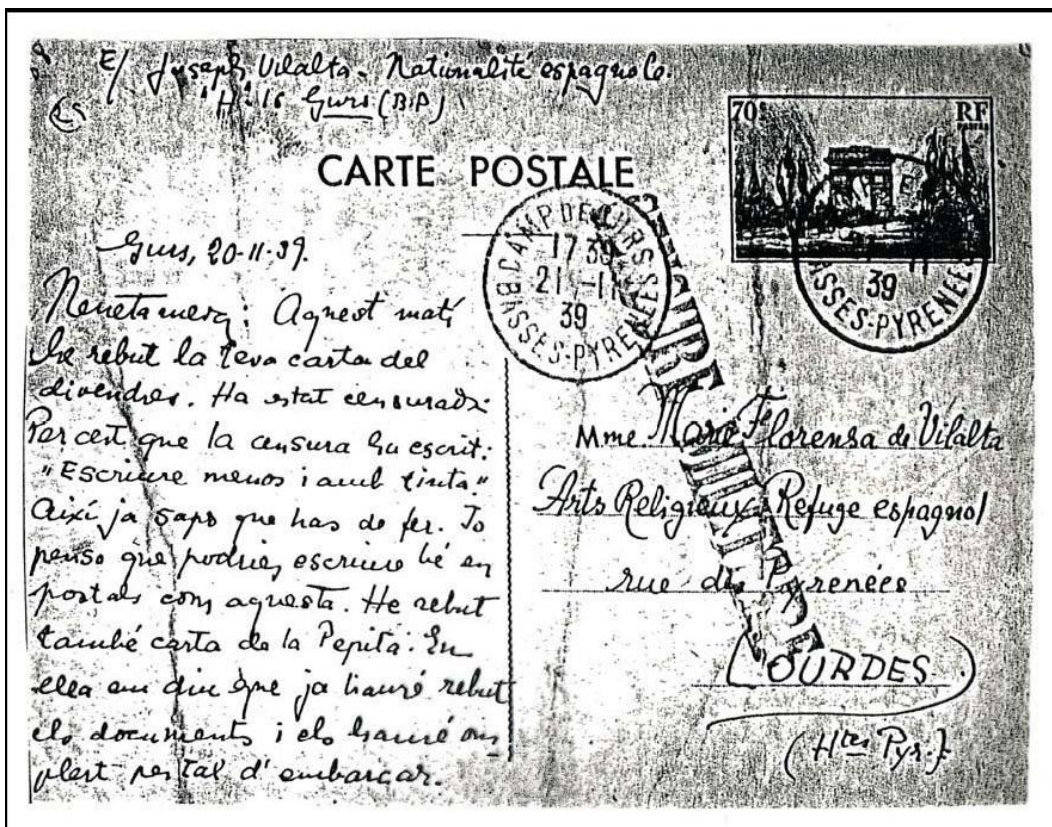 E/ Joseph Vilalta - Nationalité espagnole.
"H" 16 Gurs (B.P.)
70c RF
CARTE POSTALE
CAMP DE GURS
17 39
21 -11
39
BASSES-PYRENEES
11
39
BASSES-PYRENEES
Gurs, 20-11-39.
Neneta meva: Aquest matí
he rebut la teva carta del
divendres. Ha estat censurada.
Per cert que la censura ha escrit:
"Escriure menos i amb tinta."
Així ja saps que has de fer. Jo
penso que podries escriure bé en
postals com aquesta. He rebut
també carta de la Pepita. En
ella em diu que ja hauré rebut
els documents i els hauré om
plert per tal d'embarcar.
Mme. Maria Florensa de Vilalta
Arts Religieux, Refuge espagnol
rue des Pyrenées
LOURDES
(Htes Pyr.)